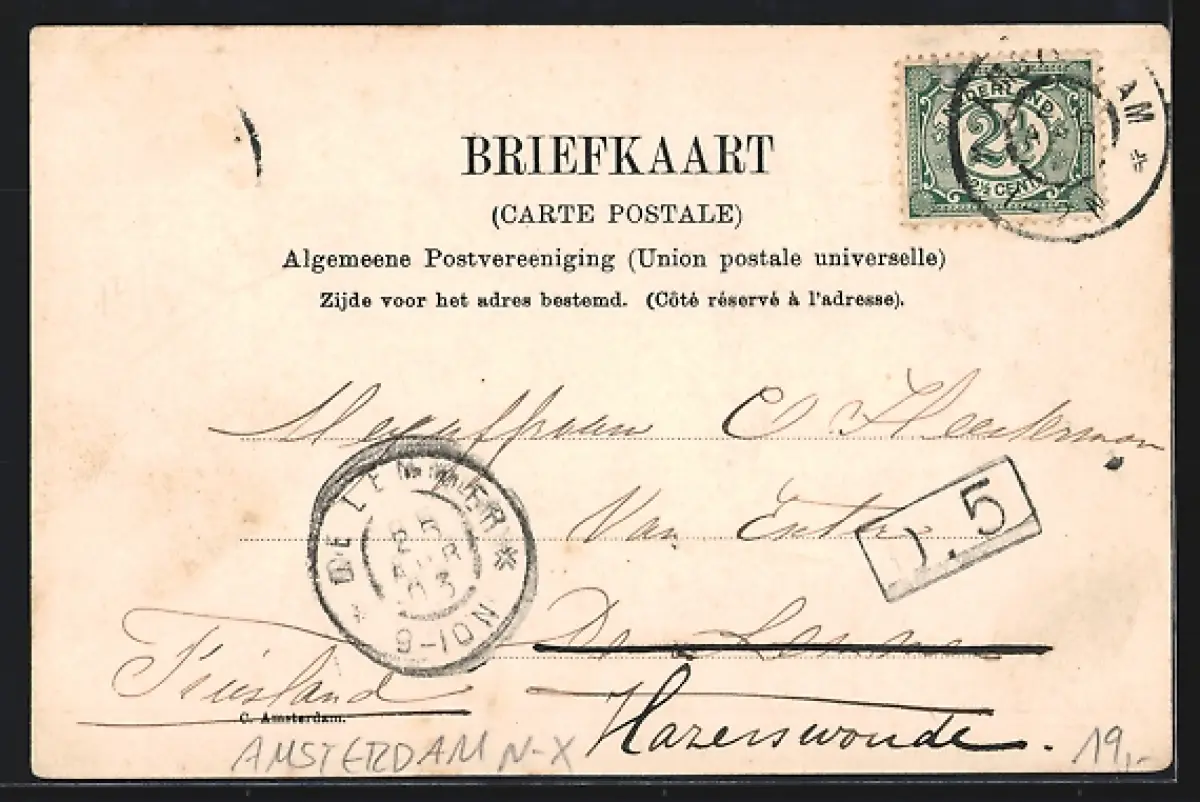 NEDERLAND
2½
2½ CENT
AM *
BRIEFKAART
(CARTE POSTALE)
Algemeene Postvereeniging (Union postale universelle)
Zijde voor het adres bestemd. (Côté réservé à l'adresse).
Mejuffrouw C. Heeterman
Van Enter
De Lemmer
Friesland
Hazerswoude.
* DE LEMMER *
25
APR
03
9-10N
D.5
C. Amsterdam.
AMSTERDAM N-X
19,-